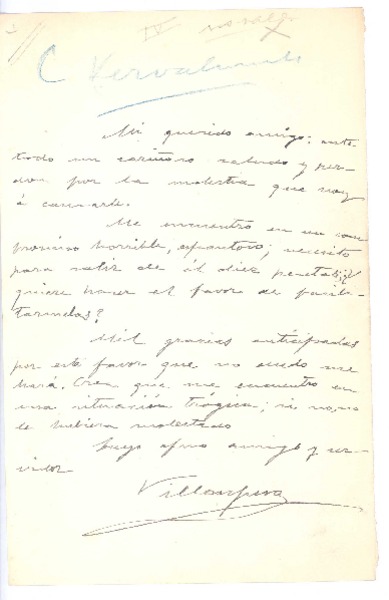 IV no salgo
C
Mi querido amigo: ante
todo un cariñoso saludo y per-
don por la molestia que voy
á causarle.
Me encuentro en un com
promiso horrible, espantoso; necesito
para salir de él diez pesetas; ¿
quiere hacer el favor de facili-
tarmelas?
Mil gracias anticipadas
por este favor que no dudo me
hará. Crea que me encuentro en
una situación trágica; si no, no
le hubiera molestado
Suyo afmo amigo y ser-
vidor